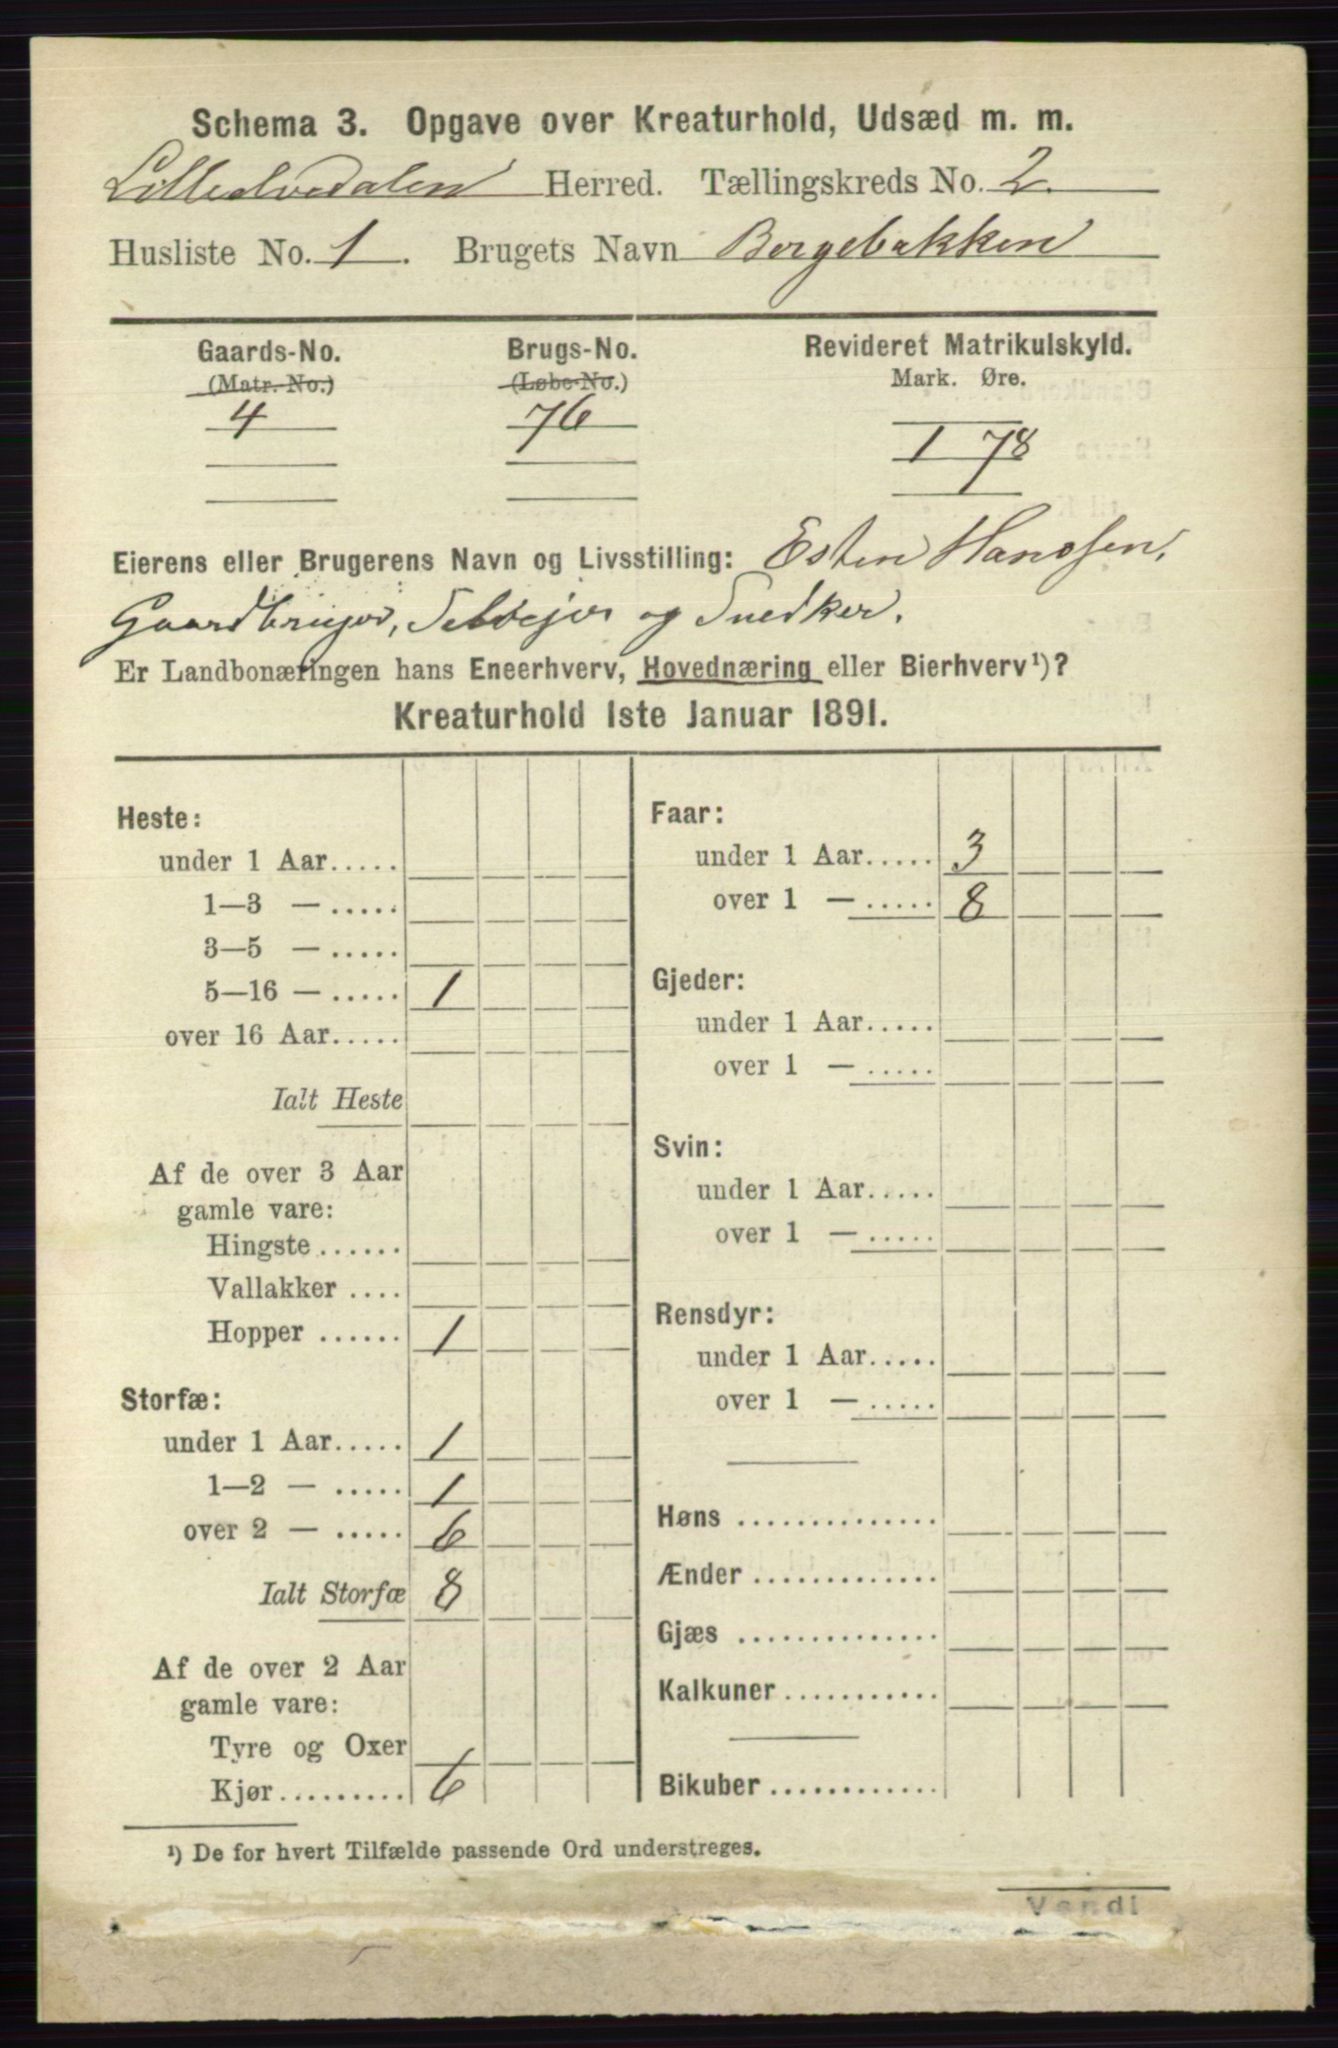 Schema 3. Opgave over Kreaturhold, Udsæd m. m.
Lilleelvedalen Herred. Tællingskreds No. 2.
Husliste No. 1. Brugets Navn Borgebakken
Gaards-No. Brugs-No. Revideret Matrikulskyld.
(Matr. No.) (Løbe-No.) Mark. Øre.
4 76 1 78
Eierens eller Brugerens Navn og Livsstilling: Esten Hansen,
Gaardbruger, Selveier og Snedker.
Er Landbonæringen hans Eneerhverv, Hovednæring eller Bierhverv¹)?
Kreaturhold 1ste Januar 1891.
Heste:
under 1 Aar.....
1—3 — .....
3—5 — .....
5—16 — ..... 1
over 16 Aar.....
Ialt Heste
Af de over 3 Aar
gamle vare:
Hingste ......
Vallakker ....
Hopper ...... 1
Storfæ:
under 1 Aar..... 1
1—2 — ..... 1
over 2 — ..... 6
Ialt Storfæ 8
Af de over 2 Aar
gamle vare:
Tyre og Oxer
Kjør......... 6
Faar:
under 1 Aar..... 3
over 1 — ..... 8
Gjeder:
under 1 Aar.....
over 1 — .....
Svin:
under 1 Aar.....
over 1 — .....
Rensdyr:
under 1 Aar.....
over 1 — .....
Høns ..............
Ænder .............
Gjæs ..............
Kalkuner ...........
Bikuber ............
¹) De for hvert Tilfælde passende Ord understreges.
Vend!